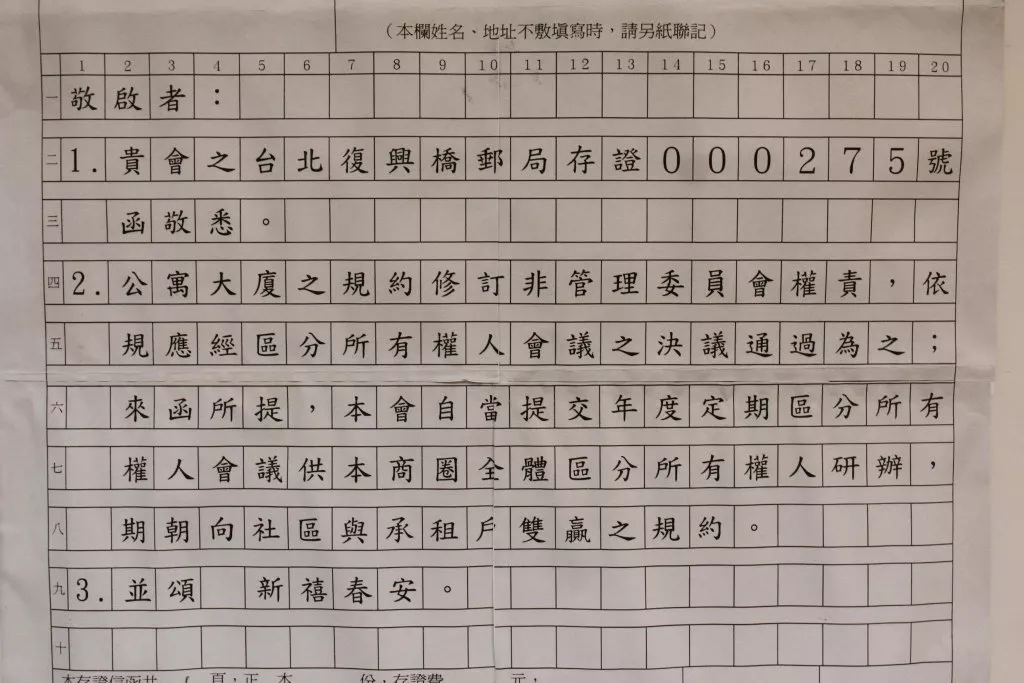 （本欄姓名、地址不敷填寫時，請另紙聯記）
1 2 3 4 5 6 7 8 9 10 11 12 13 14 15 16 17 18 19 20
一 敬啟者：
二 1.貴會之台北復興橋郵局存證000275號
三 函敬悉。
四 2.公寓大廈之規約修訂非管理委員會權責，依
五 規應經區分所有權人會議之決議通過為之；
六 來函所提，本會自當提交年度定期區分所有
七 權人會議供本商圈全體區分所有權人研辦，
八 期朝向社區與承租戶雙贏之規約。
九 3.並頌 新禧春安。
十
本存證信函共 頁，正本 份，存證費 元，